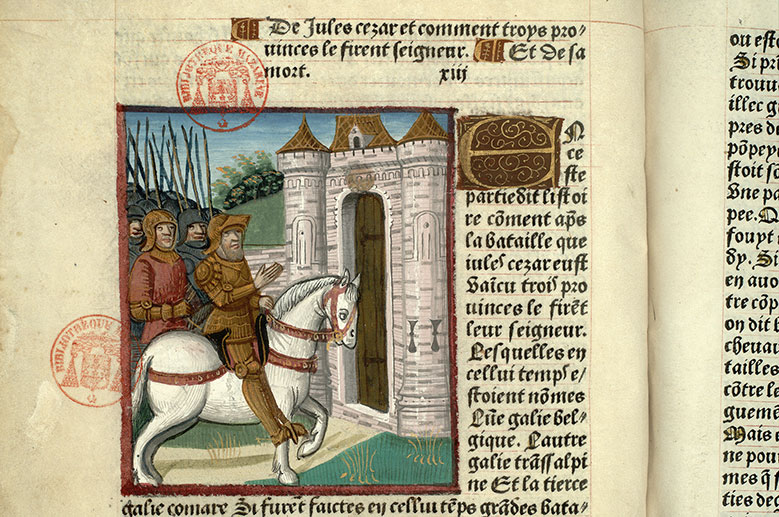 De Jules cezar et comment troys pro
uinces le firent seigneur. Et de sa
mort. xiij
BIBLIOTHEQUE MAZARINE
EN
ce
ste
partie dit listoi
re cōment aps
la bataille que
iules cezar eust
Vaicu trois pro
uinces le firēt
leur seigneur.
Lesquelles en
cellui temps e/
stoient nōmes
Lūe galie bel/
gique. Lautre
galie trāssalpi
ne Et la tierce
galie comare Si furēt faictes en cellui tēps grādes bata/
BIBLIOTHEQUE
ou esto
Si pri
trouu
illec g
pres de
pōpey
stoit so
Vne pa
pee. Q
fouyt
dy. Si
en auo
tre cōp
on dit b
cheuau
tailles
cōtre le
guemē
Mais c
ne pou
mes q̄ f
ties dec